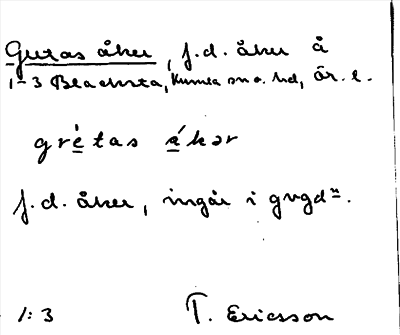 Gretas åker, f.d. åker å
1-3 Blacksta, Kumla sn o. hd, Ör. l.
gre̱̍tas á̱kər
f.d. åker, ingår i gvgdⁿ.
1:3 T. Ericsson